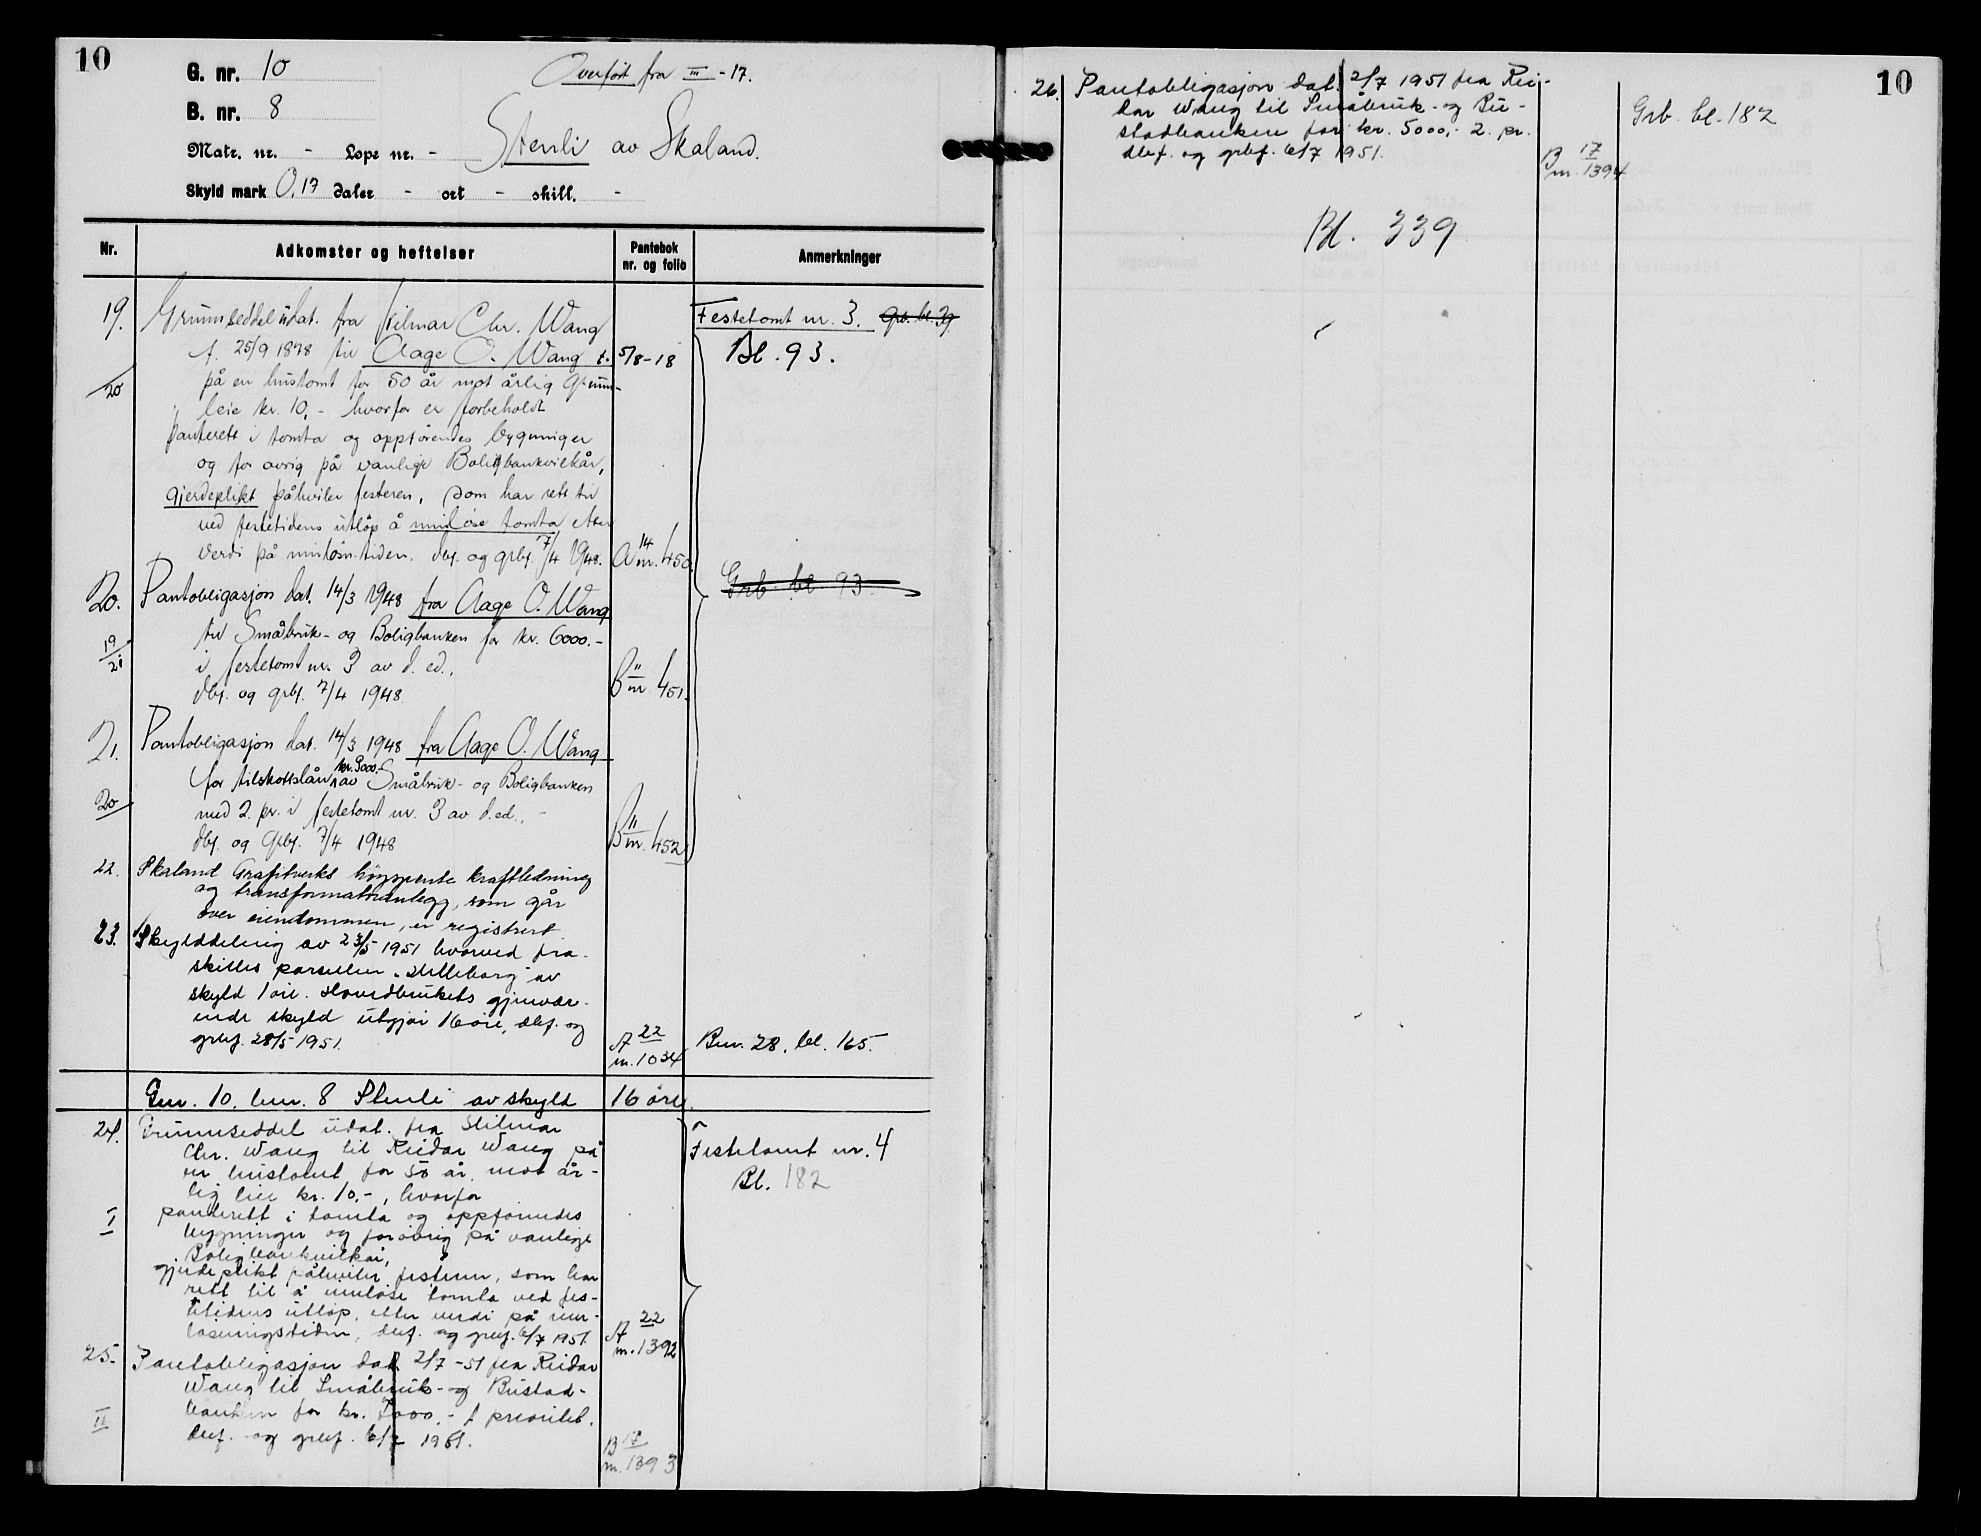 10
G. nr. 10
Overført fra III-17.
B. nr. 8
Matr. nr. - Løpe nr. - Stenli av Skaland.
Skyld mark 0,17 daler - ort - skill. -
Nr. Adkomster og heftelser Pantebok nr. og folio Anmerkninger
19. Grunnseddel udat. fra Hilmar Chr. Wang Festetomt nr. 3. Grb. bl. 39
f. 25/9 1878 til Aage O. Wang f. 5/8-18 Bl. 93.
20 på en hustomt for 50 år mot årlig grunn-
leie kr. 10,- hvorfor er forbeholdt
panterett i tomta og oppførendes bygninger
og for øvrig på vanlige Boligbankvilkår,
gjerdeplikt påhviler festeren, som har rett til
ved festetidens utløp å innløse tomta etter
verdi på innløsn.tiden. dbf. og grbf. 7/4 1948. A 14 m. 450.
Grb. bl. 93.
20. Pantobligasjon dat. 14/3 1948 fra Aage O. Wang
til Småbruk- og Boligbanken for kr. 6000.-
19/21 i festetomt nr. 3 av d. ed.,
dbf. og grbf. 7/4 1948. B 11 m. 451.
21. Pantobligasjon dat. 14/3 1948 fra Aage O. Wang
for tilskottslån kr. 3000.- av Småbruk- og Boligbanken
20 med 2. pr. i festetomt nr. 3 av d. ed.,
dbf. og grbf. 7/4 1948 B 11 m. 452
22. Skaland Grafitverks høyspente kraftledning
og transformatoranlegg, som går
over eiendommen, er registrert
23. Skylddeling av 23/5 1951 hvorved fra-
skilles parsellen "Solleborg" av
skyld 1 øre. Hovedbrukets gjenvær-
ende skyld utgjør 16 øre, dbf. og
grbf. 28/5 1951. A 22 m. 1034 Bnr. 28. bl. 165.
Gnr. 10. bnr. 8 Stenli av skyld 16 øre.
24. Grunnseddel udat. fra Hilmar
Chr. Wang til Reidar Wang på Festetomt nr. 4
en hustomt for 50 år, mot år- Bl. 182
lig leie kr. 10.-, hvorfor
I panterett i tomta og oppførendes
bygninger og forøvrig på vanlige
Boligbankvilkår,
gjerdeplikt påhviler festeren, som har
rett til å innløse tomta ved fes-
tetidens utløp, etter verdi på inn-
løsningstiden, dbf. og grbf. 6/7 1951. A 22 m. 1392
25. Pantobligasjon dat. 2/7 -51 fra Reidar
Wang til Småbruk- og Bustad-
II banken for kr. 7000.- 1 prioritet.
dbf. og grbf. 6/7 1951. B 17 m. 1393
10
26. Pantobligasjon dat. 2/7 1951 fra Rei-
dar Wang til Småbruk- og Bu- Grb. bl. 182
stadbanken for kr. 5000,- 2. pr.
dbf. og grbf. 6/7 1951. B 17 m. 1394
Bl. 339